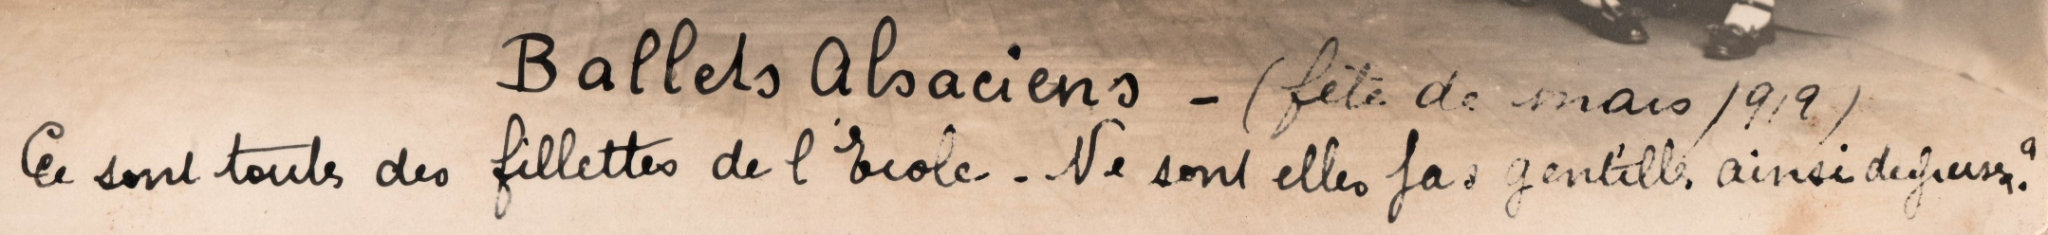 Ballets Alsaciens - (fête de mars 1919)
Ce sont toutes des fillettes de l'Ecole - Ne sont elles pas gentilles ainsi deguisées?